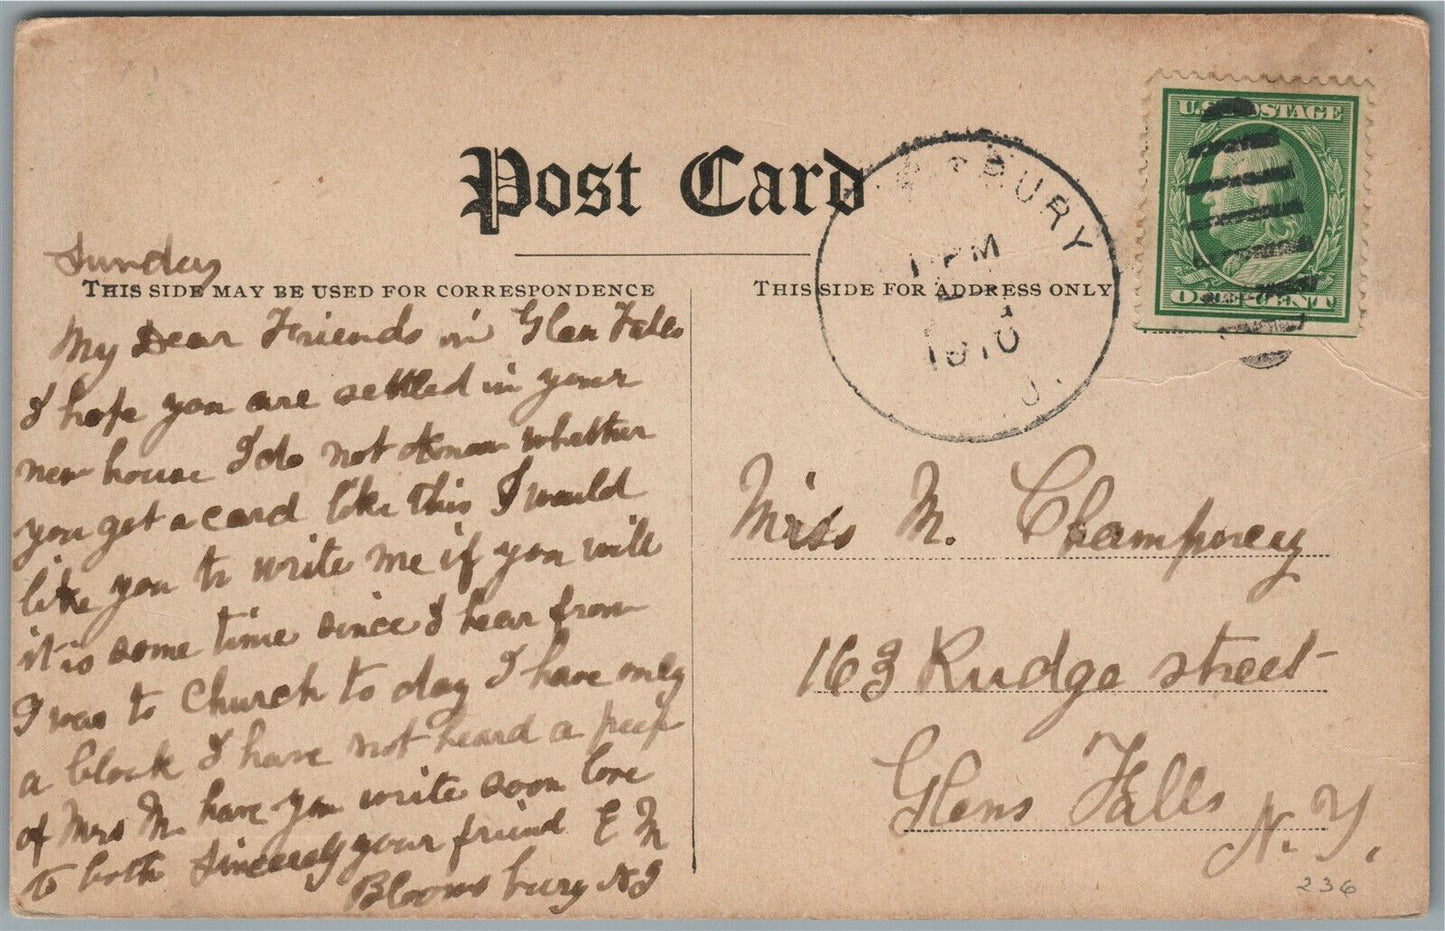 Post Card
THIS SIDE MAY BE USED FOR CORRESPONDENCE
THIS SIDE FOR ADDRESS ONLY
U.S. POSTAGE
ONE CENT
TSBURY
1 PM
1910
J.
Sunday
My Dear Friends in Glen Falls
I hope you are settled in your
new house I do not know whether
you get a card like this I would
like you to write me if you will
it is some time since I hear from
I was to Church to day I have only
a block I have not heard a peep
of Mrs M. have you write soon love
to both Sincerely your friend E M
Bloomsbury NJ
Miss M. Champney
163 Ridge street
Glens Falls
N.Y.
236